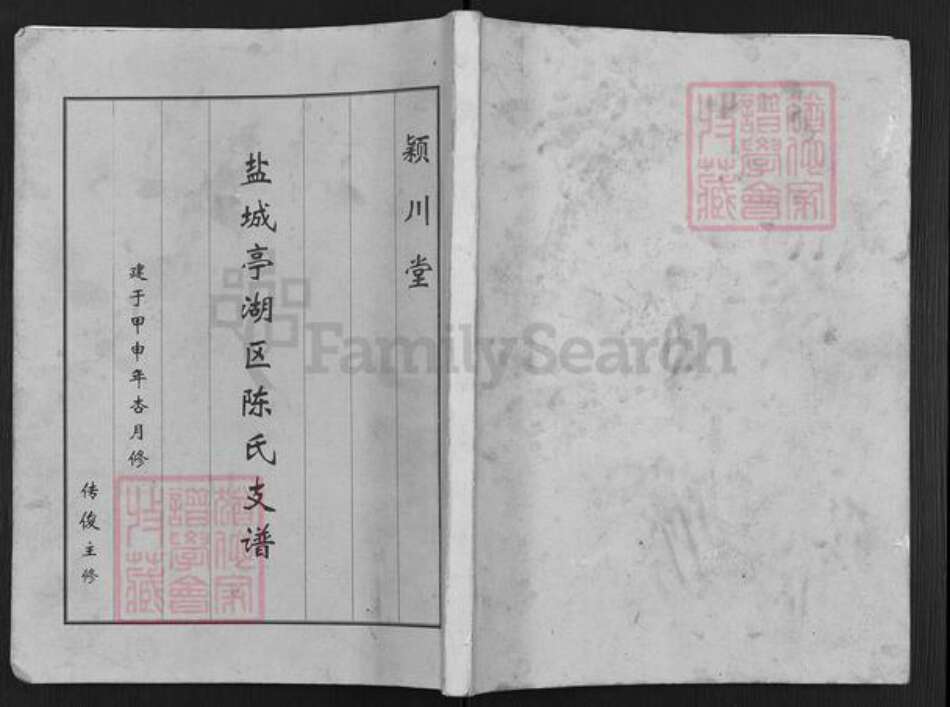 颍川堂
盐城亭湖区陈氏支谱
建于甲申年杏月修
传俊主修
FamilySearch
谱學會
收藏
谱學會
收藏